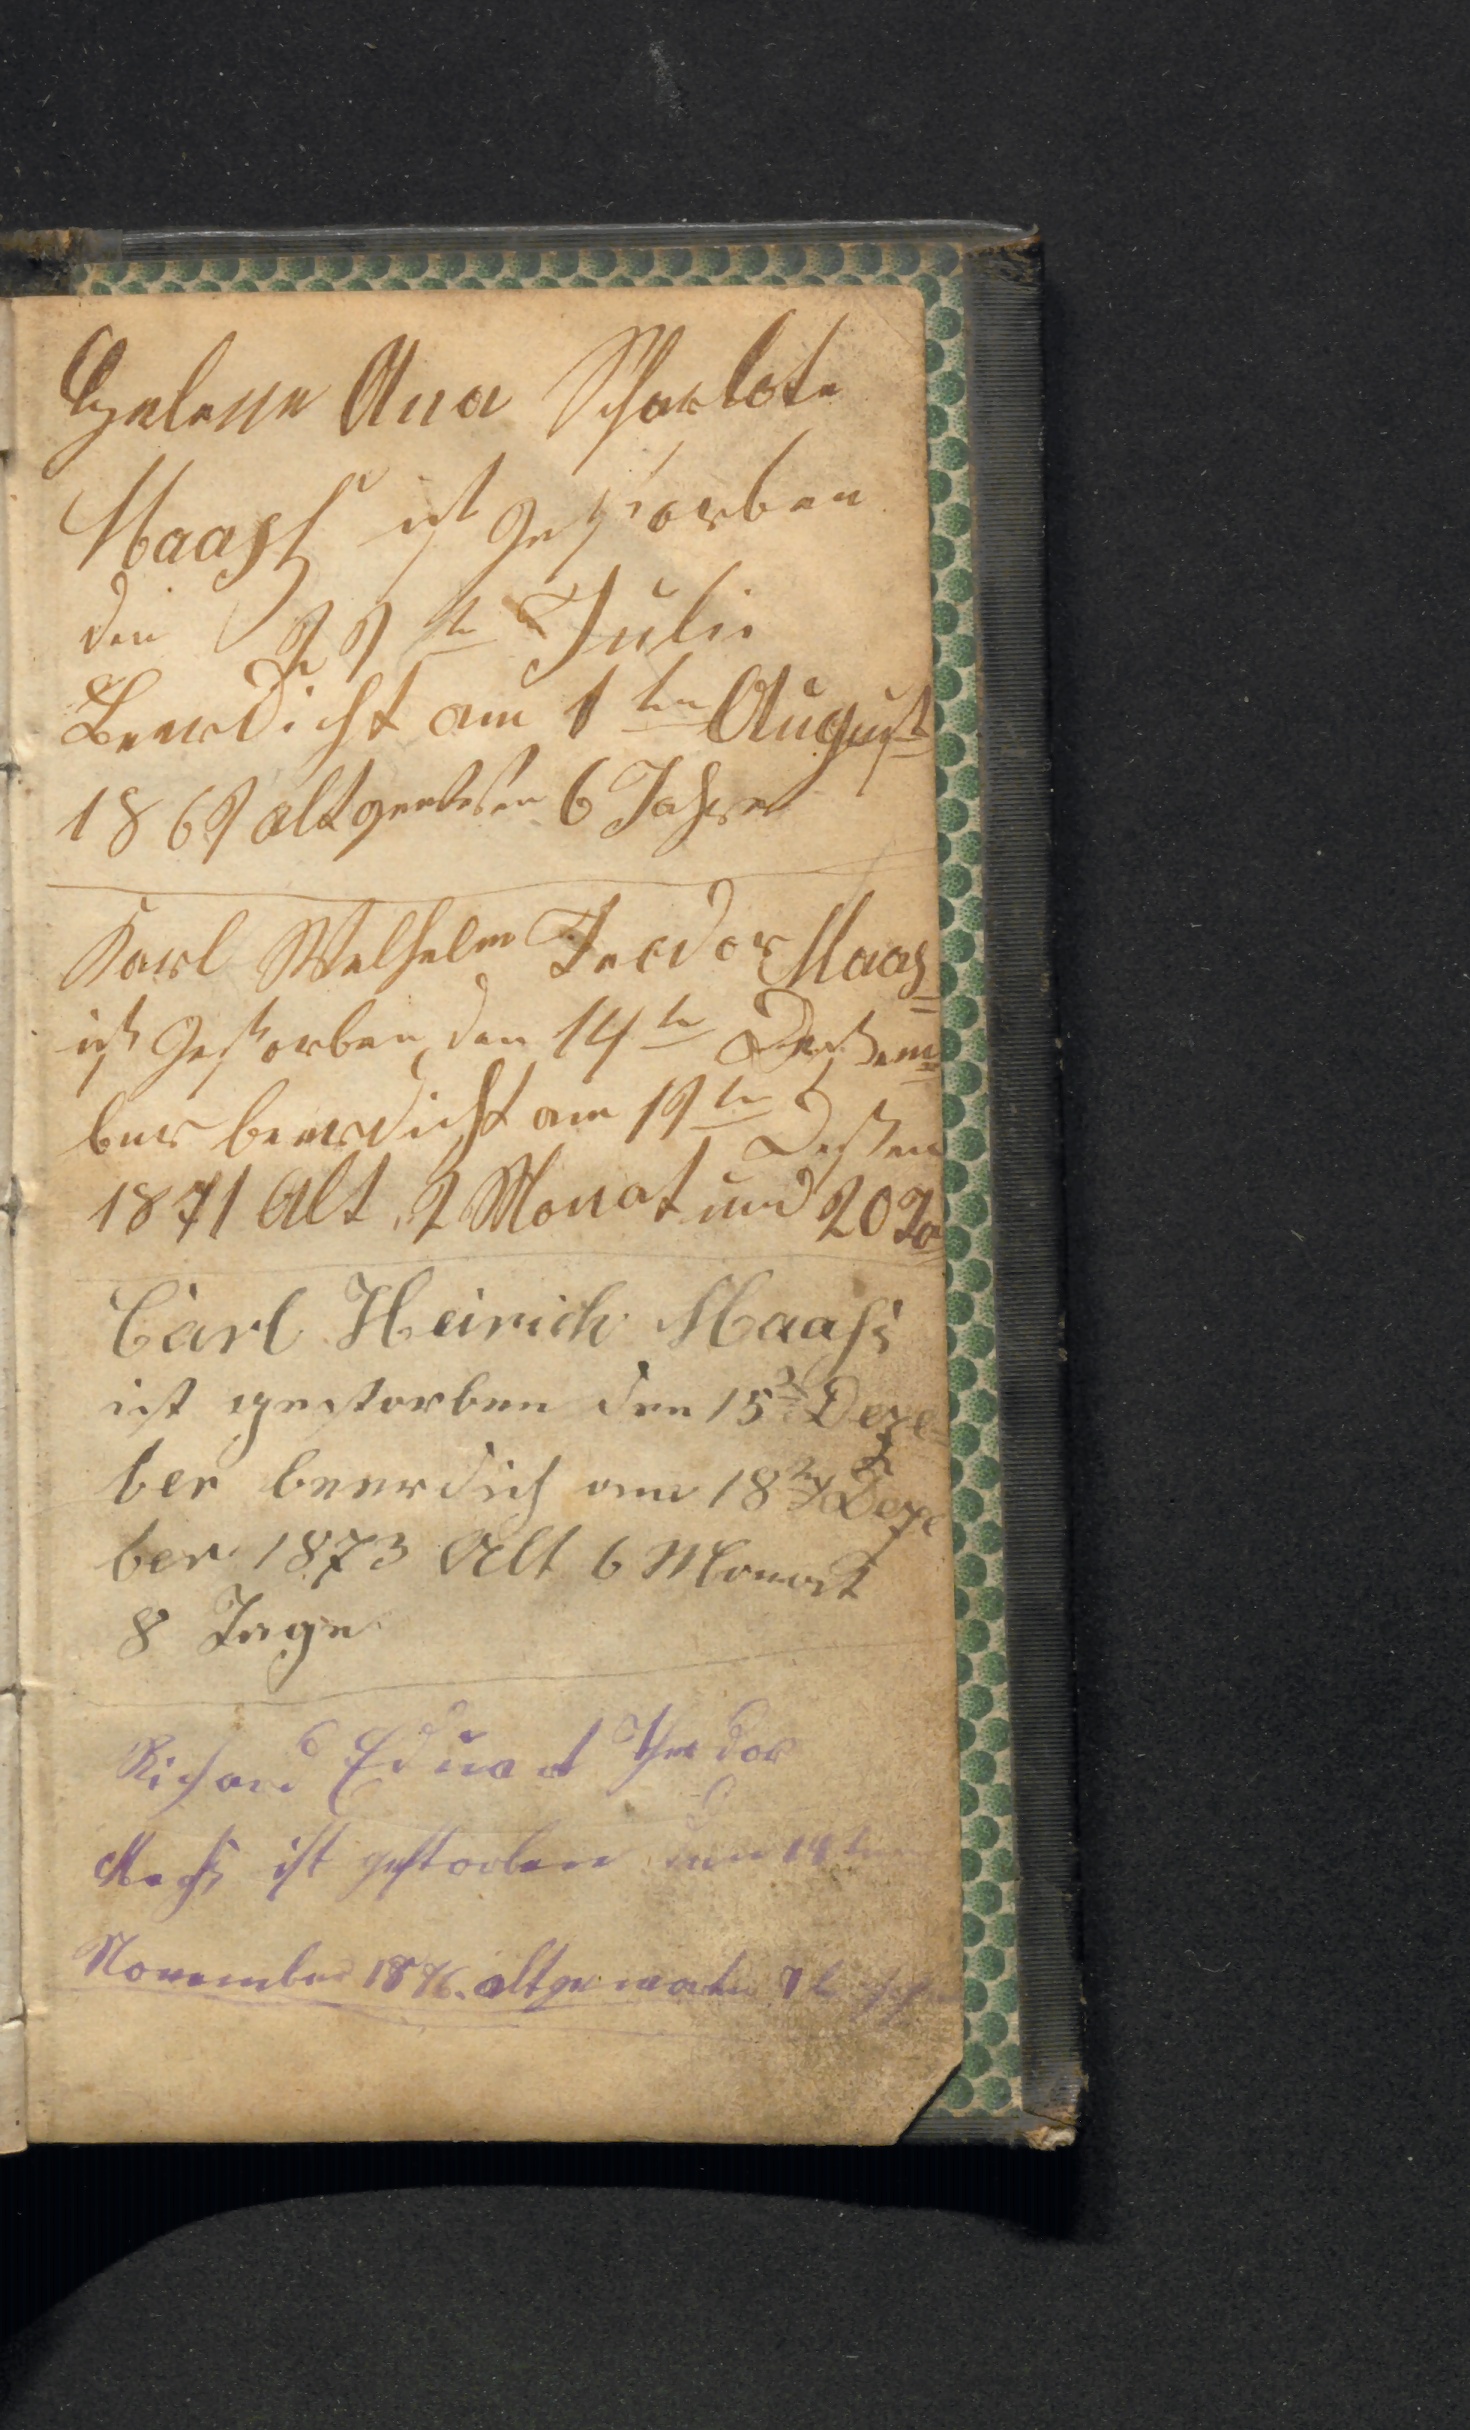 Helene Ana Scharlote
Maaſs ist Gestorben
den 29te Julii
Beerdicht am 1ten August
1869 alt gewesen 6 Jahre
Karl Welhelm Teodor Maas
ist Gestorben den 14te Deßem
ber beerdicht am 19te Deßem
1871 Alt 2 Monat und 20 Ta
Carl Heinrich Maaſs
ist gestorben den 15 Deze
ber beerdich am 18 Deze
ber 1873 Alt 6 Monat
8 Tage
Richard Eduard Theodor
Maaſs ist gestorben den 14ten
November 1876. alt